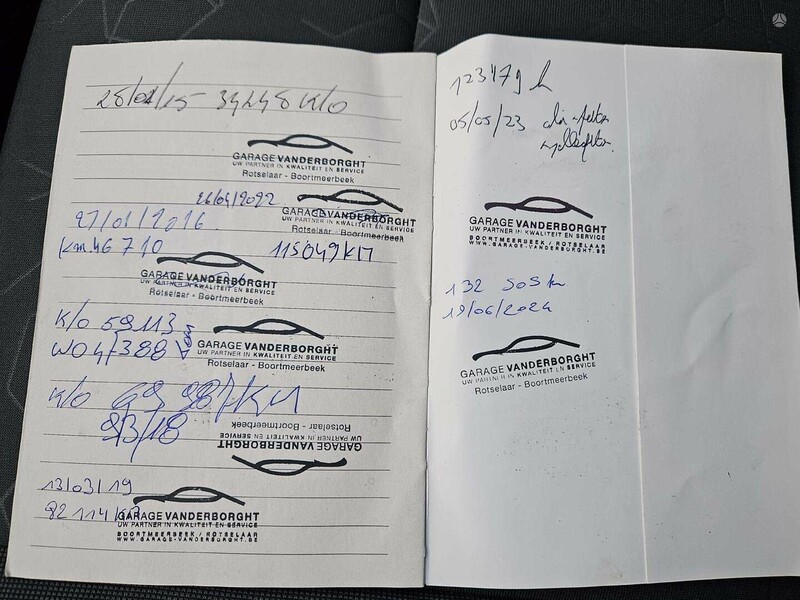 28/01/15 - 34248 K/O
GARAGE VANDERBORGHT
UW PARTNER IN KWALITEIT EN SERVICE
Rotselaar - Boortmeerbeek
26/04/2022
GARAGE VANDERBORGHT
UW PARTNER IN KWALITEIT EN SERVICE
Rotselaar - Boortmeerbeek
27/01/2016
km 46710
115049 KM
GARAGE VANDERBORGHT
UW PARTNER IN KWALITEIT EN SERVICE
Rotselaar - Boortmeerbeek
K/O 59113
WO4/388
GARAGE VANDERBORGHT
UW PARTNER IN KWALITEIT EN SERVICE
Rotselaar - Boortmeerbeek
K/O 69987 KM
93/18
Rotselaar - Boortmeerbeek
UW PARTNER IN KWALITEIT EN SERVICE
GARAGE VANDERBORGHT
13/03/19
82114 KM
GARAGE VANDERBORGHT
UW PARTNER IN KWALITEIT EN SERVICE
BOORTMEERBEEK / ROTSELAAR
WWW.GARAGE-VANDERBORGHT.BE
123479 k
05/05/23
GARAGE VANDERBORGHT
UW PARTNER IN KWALITEIT EN SERVICE
BOORTMEERBEEK / ROTSELAAR
WWW.GARAGE-VANDERBORGHT.BE
132 505 km
19/06/2024
GARAGE VANDERBORGHT
UW PARTNER IN KWALITEIT EN SERVICE
Rotselaar - Boortmeerbeek